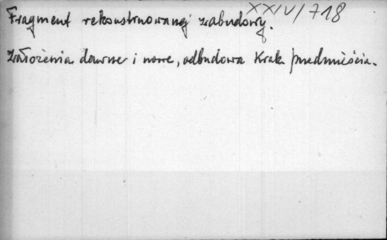 XXIV/718
Fragment rekonstruowanej zabudowy.
Założenia dawne i nowe, odbudowa Krak. Przedmieścia.